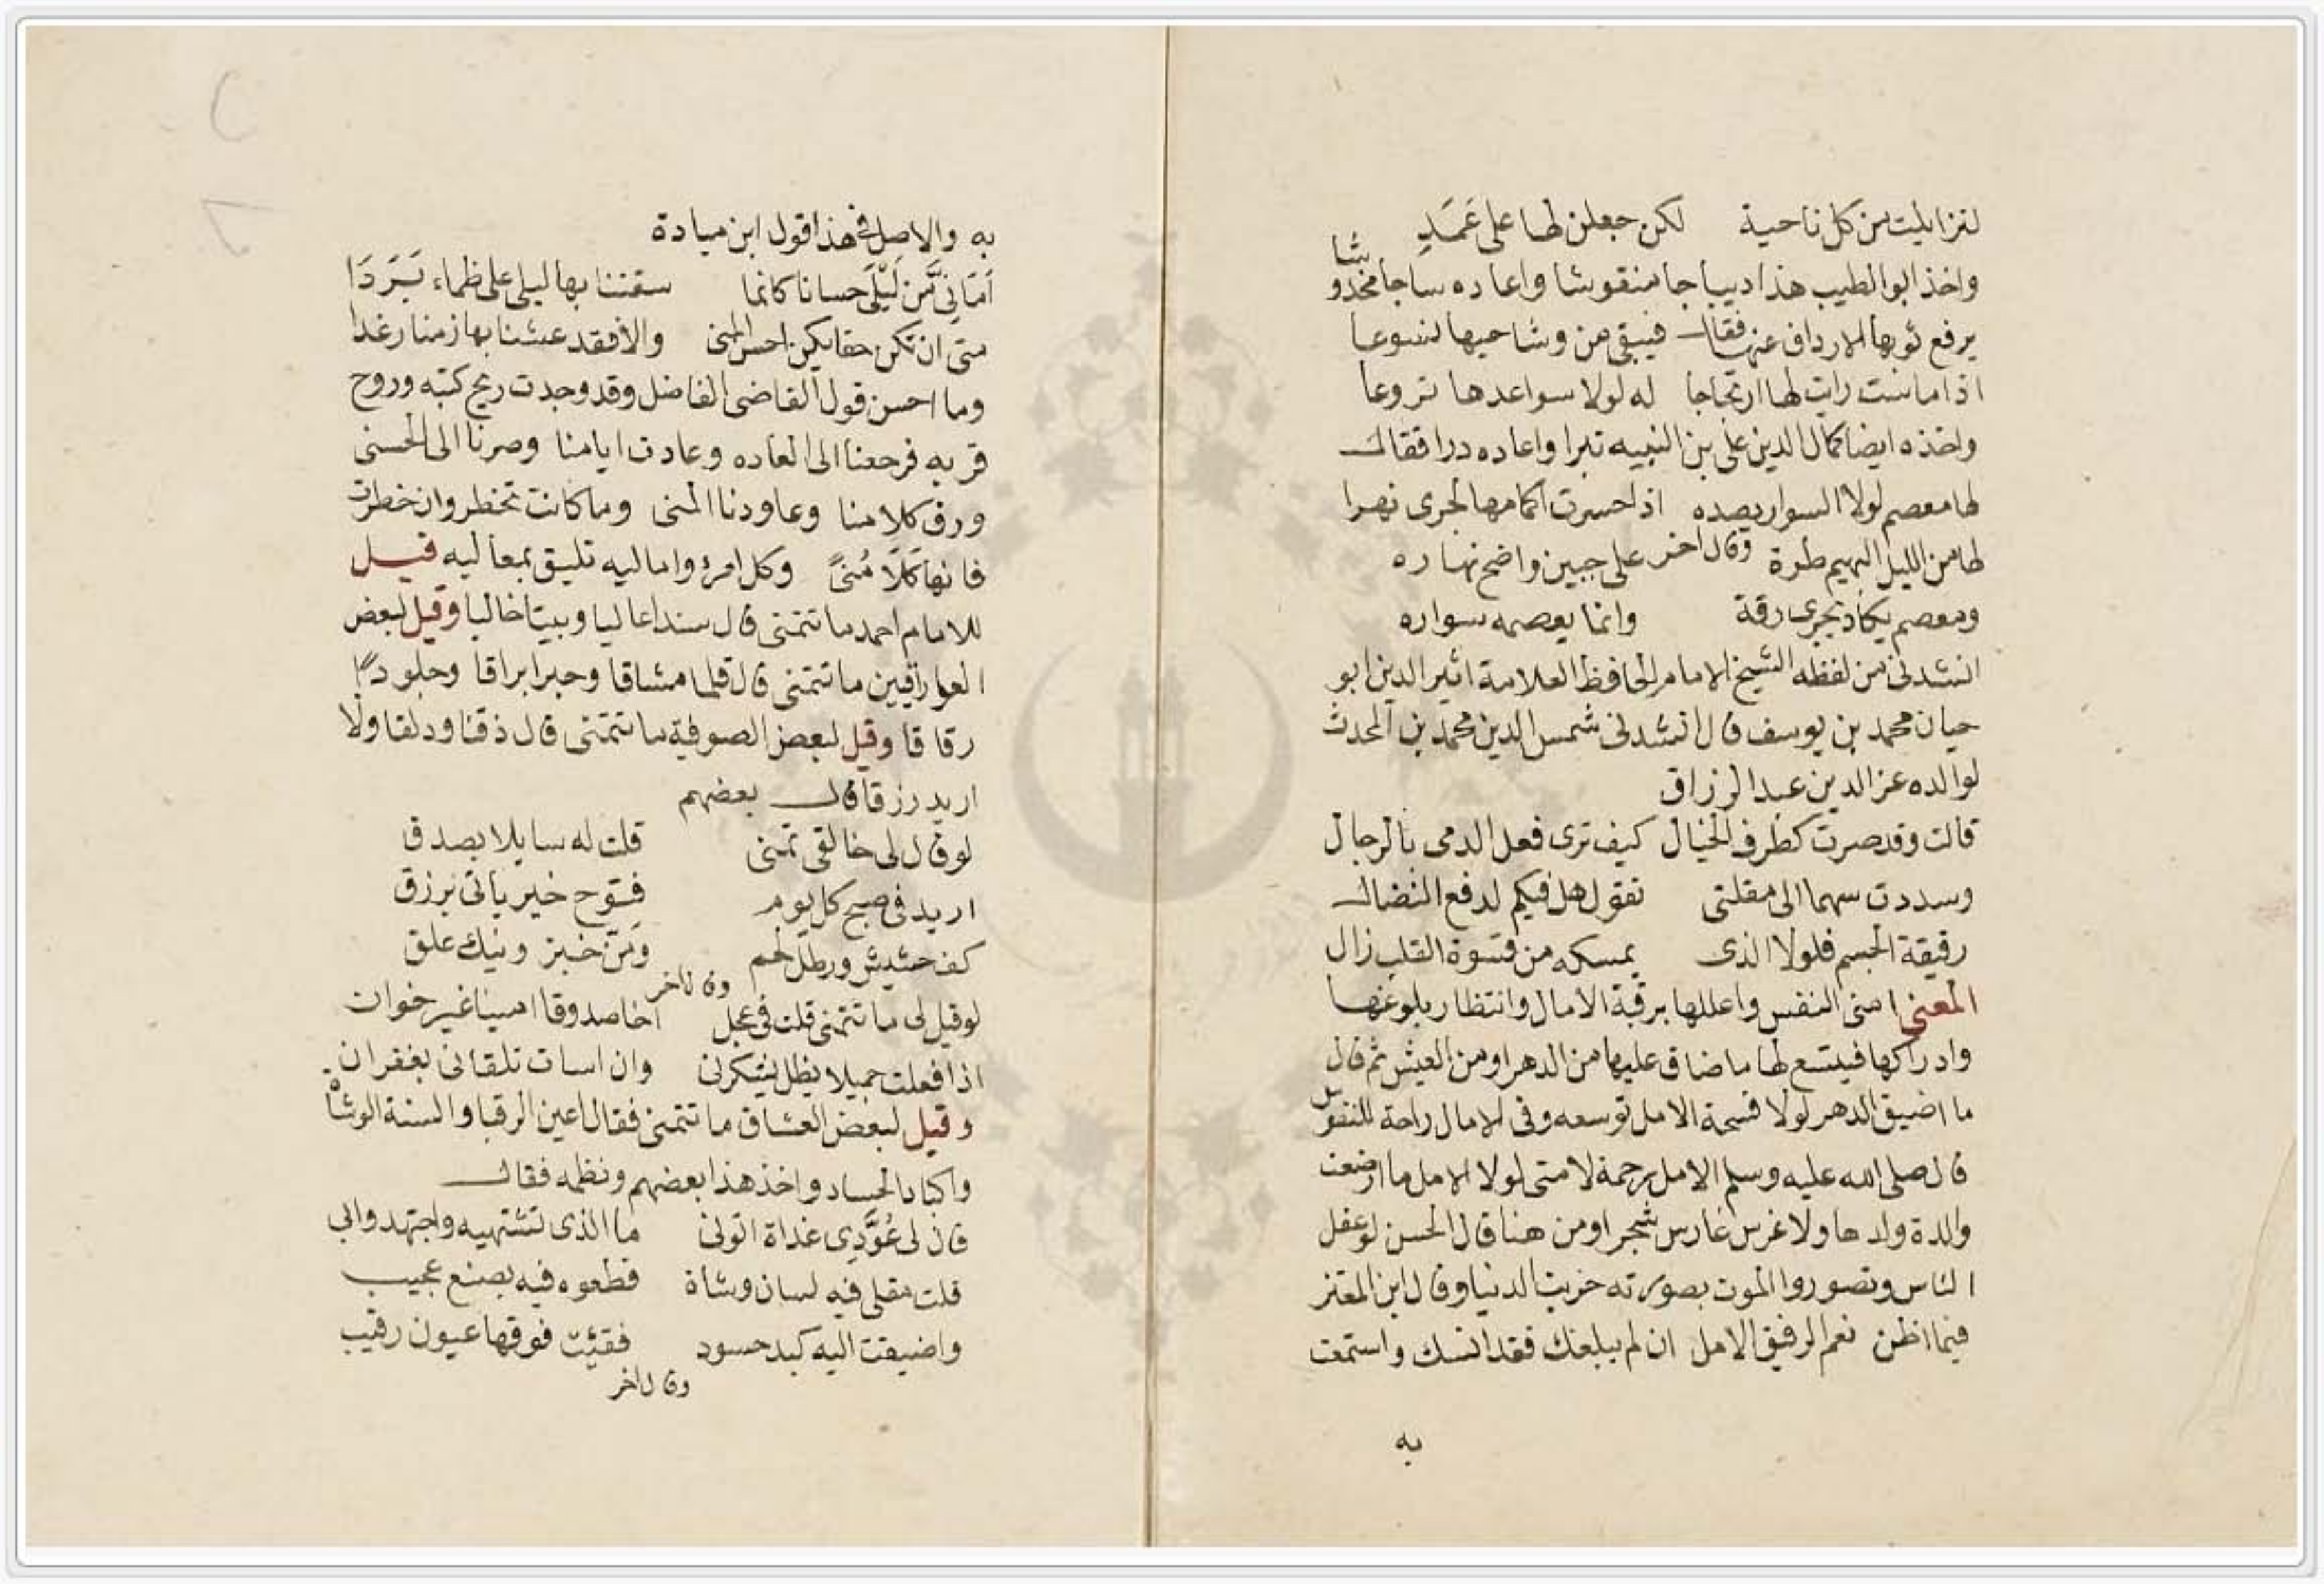 لتزايلت من كل ناحية لكن جعلن لها على عَمَدِ
واخذ ابو الطيب هذا ديباجا منقوشا واعاده ساجا مخدوشا
يرفع ثوبها الارداف عنها فقال فيبقى من وشاحيها شسوعا
اذا ماست رايت لها ارتجاجا له لولا سواعدها نزوعا
واخذه ايضا كمال الدين على بن النبيه تبرا واعاده درا فقال
لها معصم لولا السوار يصده اذا حسرت اكمامها لجرى نهرا
وقال اخر
لها من الليل البهيم طرة على جبين واضح نهاره
ومعصم يكاد يجرى رقة وانما يعصمه سواره
انشدنى من لفظه الشيخ الامام الحافظ العلامة اثير الدين ابو
حيان محمد بن يوسف قال انشدنى شمس الدين محمد بن المحدث
لوالده عز الدين عبد الرزاق
قالت وقد صرت كطرف الخيال كيف ترى فعل الدمى بالرجال
وسددت سهما الى مقلتى تقول هل فيكم لدفع النضال
رقيقة الجسم فلولا الذى يمسكه من قسوة القلب زال
المعنى امنى النفس واعللها برقبة الامال وانتظار بلوغها
وادراكها فيتسع لها ما ضاق عليها من الدهر او من العيش ثم قال
ما اضيق الدهر لولا فسحة الامل توسعه وفى الامال راحة للنفوس
قال صلى الله عليه وسلم الامل رحمة لامتى لولا الامل ما ارضعت
والدة ولدها ولا غرس غارس شجرا ومن هنا قال الحسن لو عقل
الناس وتصوروا الموت بصورته خربت الدنيا وقال ابن المعتز
فيما اظن نعم الرفيق الامل ان لم يبلغك فقد انسك واستمعت
به
به والاصل فى هذا قول ابن ميادة
اَمَانِىَّ مِن لَيْلَى حسانا كانما سقتنا بها ليلى على ظماء بَرَدَا
متى ان تكن حقا يكن احسن المنى والا فقد عشنا بها زمنا رغدا
وما احسن قول القاضى الفاضل وقد وجدت ريح كتبه وروح
قربه فرجعنا الى العاده وعادت ايامنا وصرنا الى الحسنى
ورق كلامنا وعاودنا المنى وما كانت تخطر وان خطرت
فانها كَلَا مُنىً وكل امرئ وامانيه تليق بمعاليه قيل
للامام احمد ما تتمنى قال سندا عاليا وبيتا خاليا وقيل لبعض
الوراقين ما تتمنى قال قلما مشاقا وحبرا براقا وجلودا
رقاقا وقيل لبعض الصوفية ما تتمنى قال ذقنا ودلقا ولا
اريد رزقا قال بعضهم
لو قال لى خالقى تمنى قلت له سايلا بصدق
اريد فى صبح كل يوم فتوح خير ياتى برزق
كف حشيش ورطل لحم ومَنّ خبز ونيك علق
وقال اخر
لو قيل لى ما تتمنى قلت فى عجل اخا صدوقا امينا غير خوان
اذا فعلت جميلا يظل يشكرنى وان اسات تلقانى بغفران
وقيل لبعض العشاق ما تتمنى فقال اعين الرقبا والسنة الوشاة
واكباد الحساد واخذ هذا بعضهم ونظمه فقال
قال لى عُوَّدِى غداة اتونى ما الذى تشتهيه واجتهدوا بى
قلت مقلى فيه لسان وشاة قطعوه فيه بصنع عجيب
واضيفت اليه كبد حسود فقئت فوقها عيون رقيب
وقال اخر